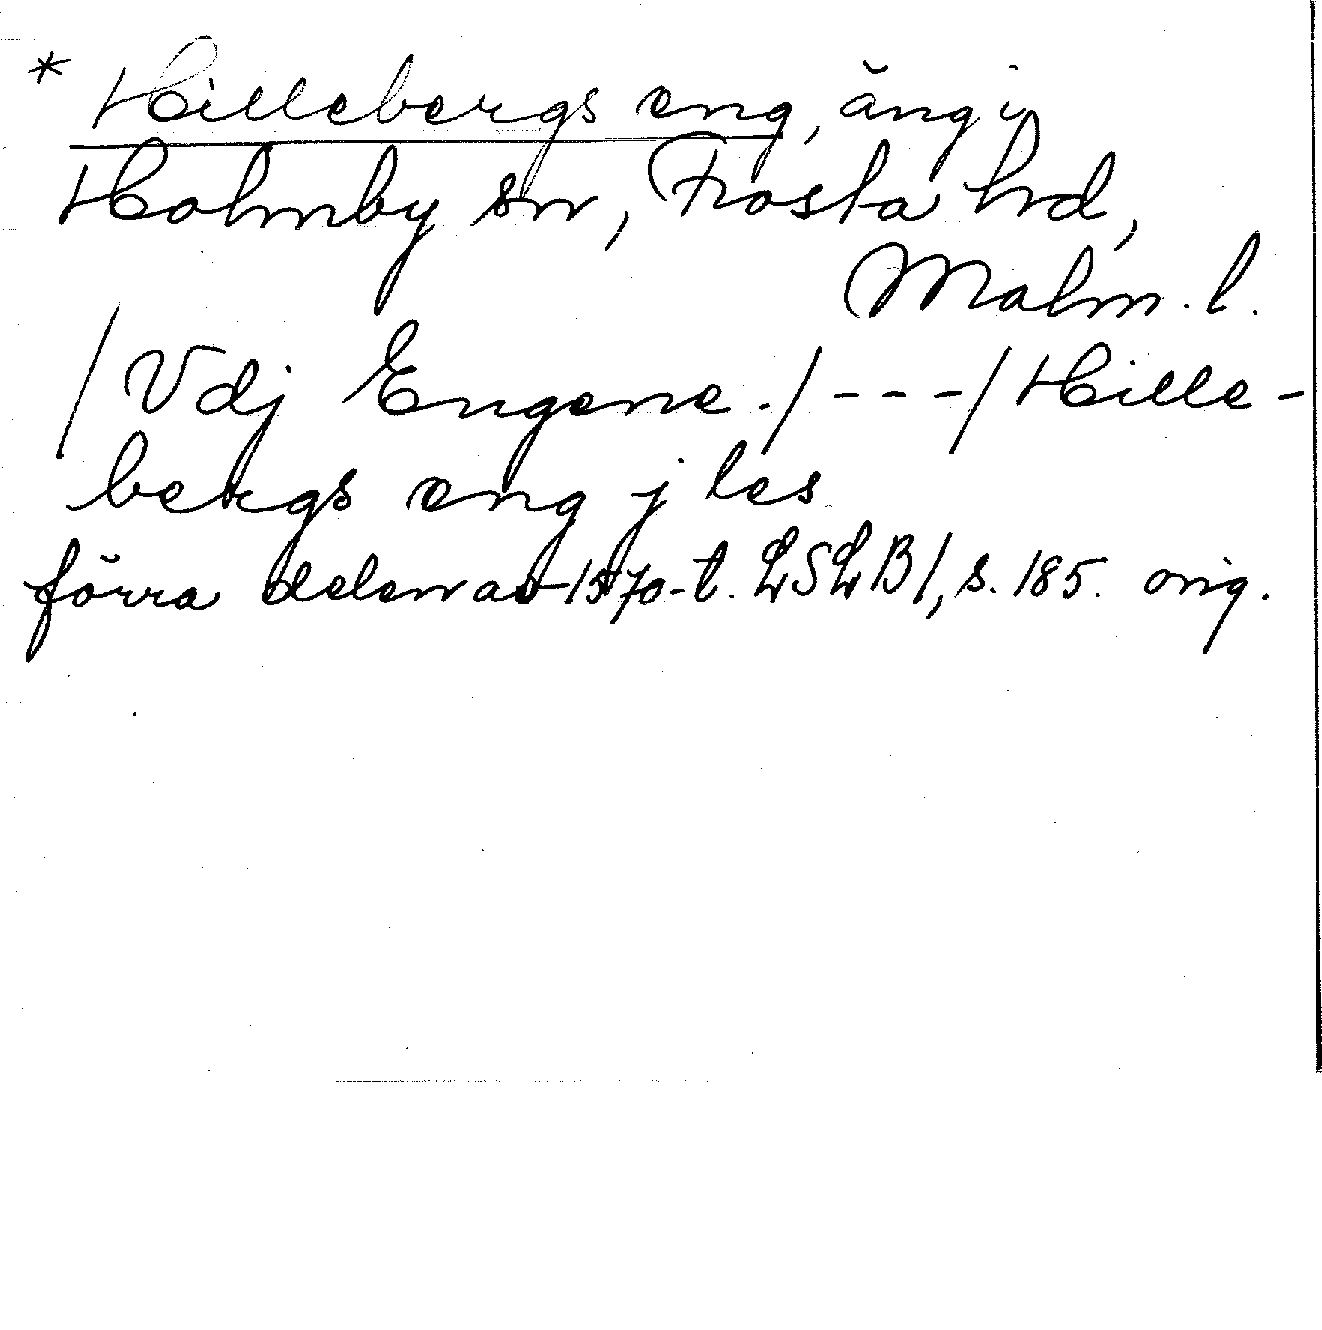 * Hillebergs eng, äng i
Holmby sn, Frosta hd,
Malm. l.
/Vdj Engene./---/Hille-
bergs eng j les
förra delen av 1570-t. LSLB1, s. 185. orig.